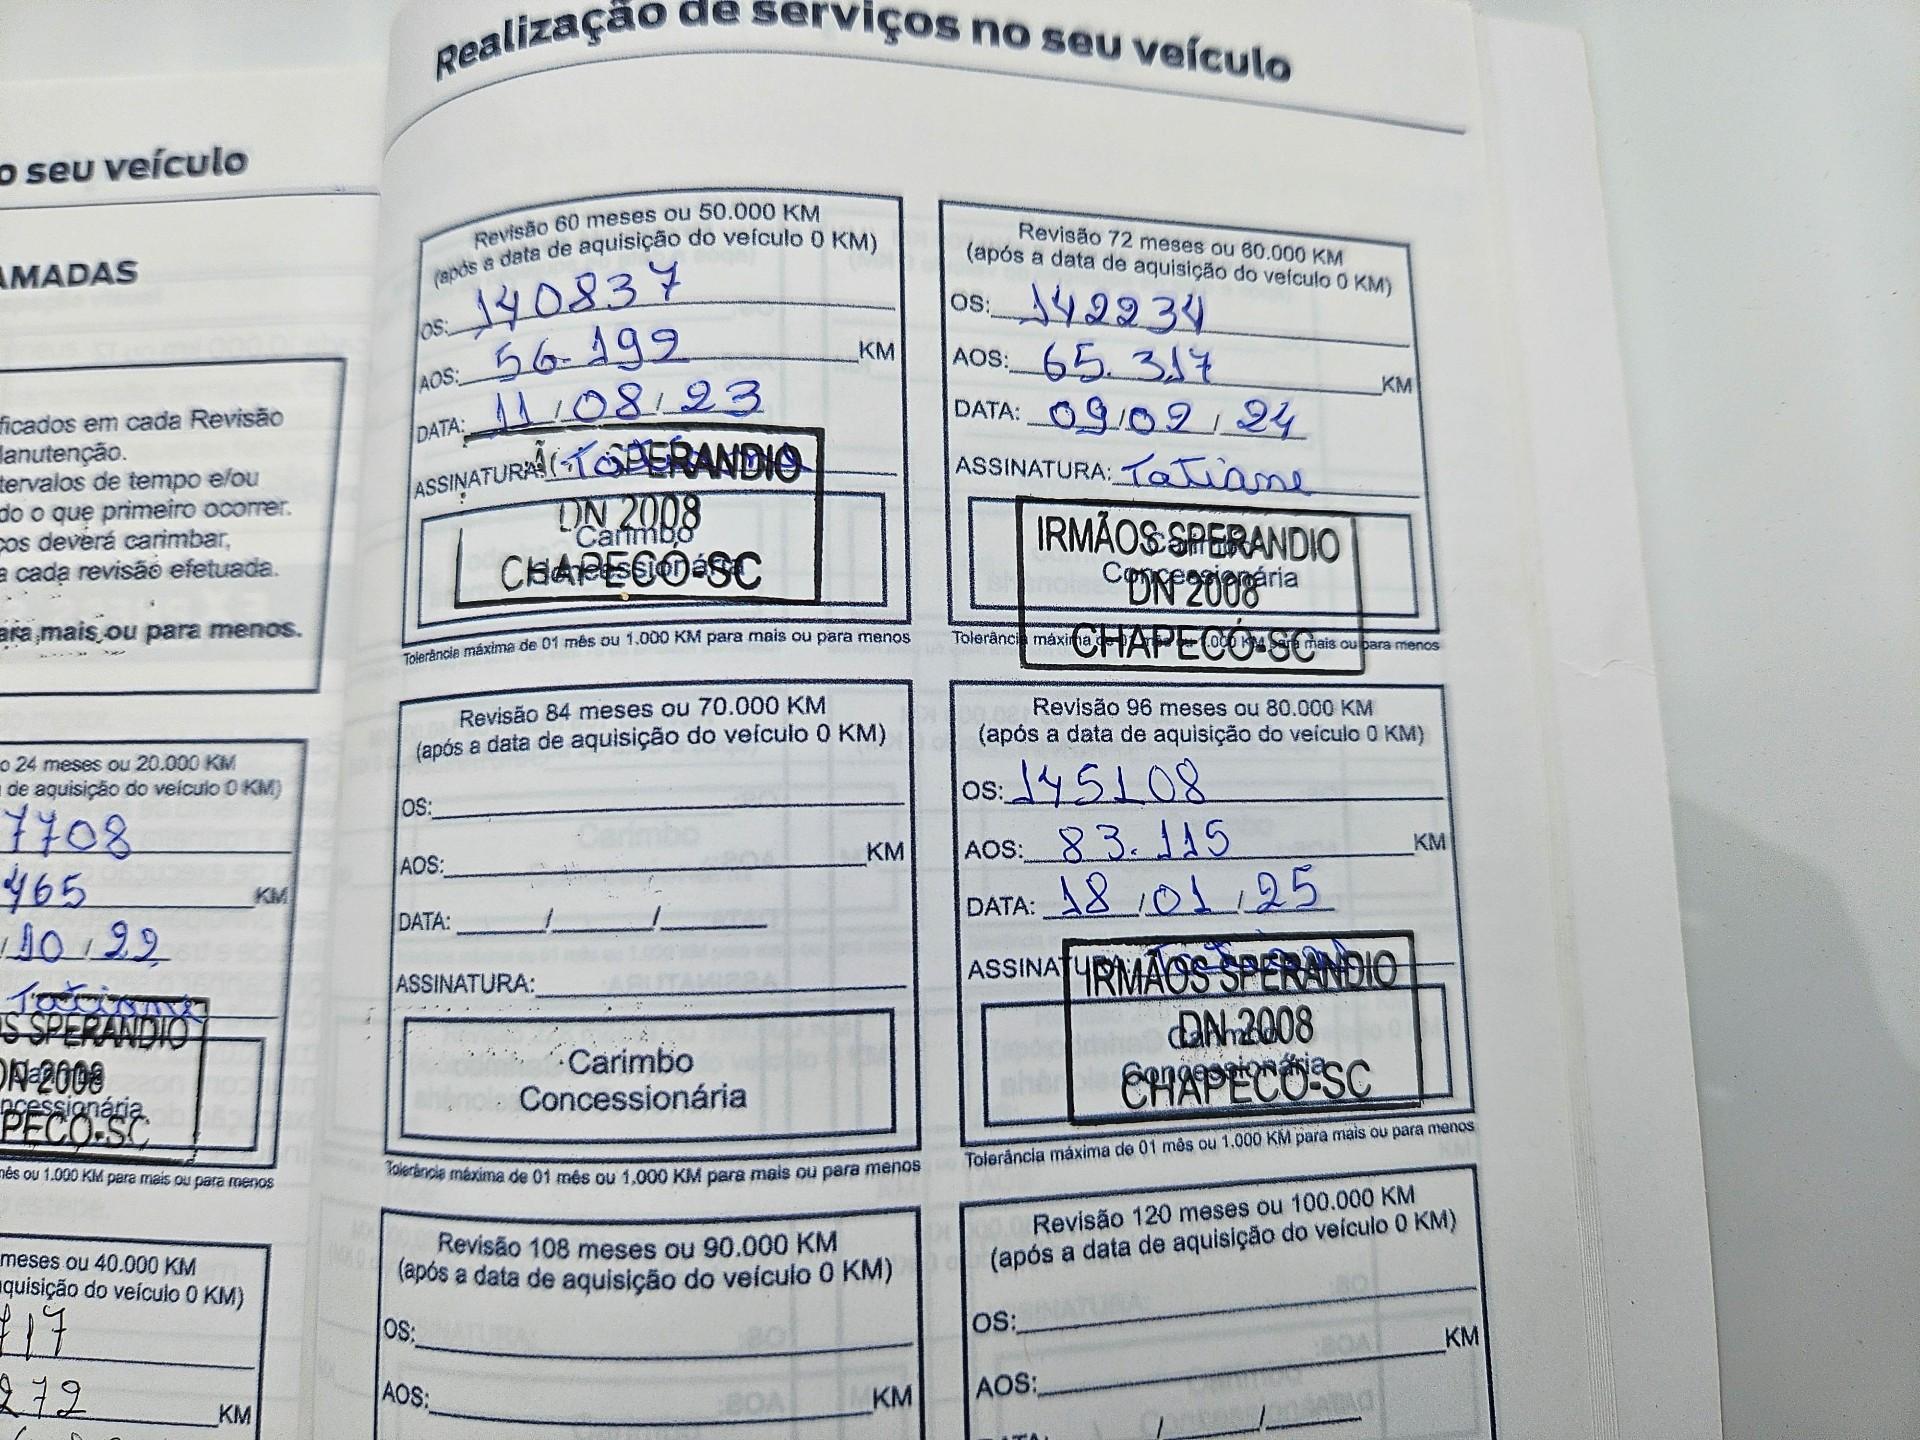 o seu veículo
AMADAS
ficados em cada Revisão
lanutenção.
tervalos de tempo e/ou
do o que primeiro ocorrer.
ços deverá carimbar,
a cada revisão efetuada.
ara mais ou para menos.
o 24 meses ou 20.000 KM
de aquisição do veículo 0 KM)
7708
465 KM
/10/22
Tatiane
S SPERANDIO
DN 2008
ncessionária
PECÓ-SC
mês ou 1.000 KM para mais ou para menos
meses ou 40.000 KM
quisição do veículo 0 KM)
717
272 KM
Realização de serviços no seu veículo
Revisão 60 meses ou 50.000 KM
(após a data de aquisição do veículo 0 KM)
OS: 140837
AOS: 56.199 KM
DATA: 11/08/23
ASSINATURA: Tatiane
SPERANDIO
DN 2008
Carimbo
Concessionária
CHAPECÓ-SC
Tolerância máxima de 01 mês ou 1.000 KM para mais ou para menos
Revisão 72 meses ou 60.000 KM
(após a data de aquisição do veículo 0 KM)
OS: 142234
AOS: 65.317 KM
DATA: 09/02/24
ASSINATURA: Tatiane
IRMÃOS SPERANDIO
Carimbo
Concessionária
DN 2008
CHAPECÓ-SC
Tolerância máxima de 01 mês ou 1.000 KM para mais ou para menos
Revisão 84 meses ou 70.000 KM
(após a data de aquisição do veículo 0 KM)
OS:
AOS: KM
DATA: / /
ASSINATURA:
Carimbo
Concessionária
Tolerância máxima de 01 mês ou 1.000 KM para mais ou para menos
Revisão 96 meses ou 80.000 KM
(após a data de aquisição do veículo 0 KM)
OS: 145108
AOS: 83.115 KM
DATA: 18/01/25
ASSINATURA: Tatiane
IRMÃOS SPERANDIO
DN 2008
Carimbo
Concessionária
CHAPECÓ-SC
Tolerância máxima de 01 mês ou 1.000 KM para mais ou para menos
Revisão 108 meses ou 90.000 KM
(após a data de aquisição do veículo 0 KM)
OS:
AOS: KM
Revisão 120 meses ou 100.000 KM
(após a data de aquisição do veículo 0 KM)
OS:
AOS: KM
DATA: / /